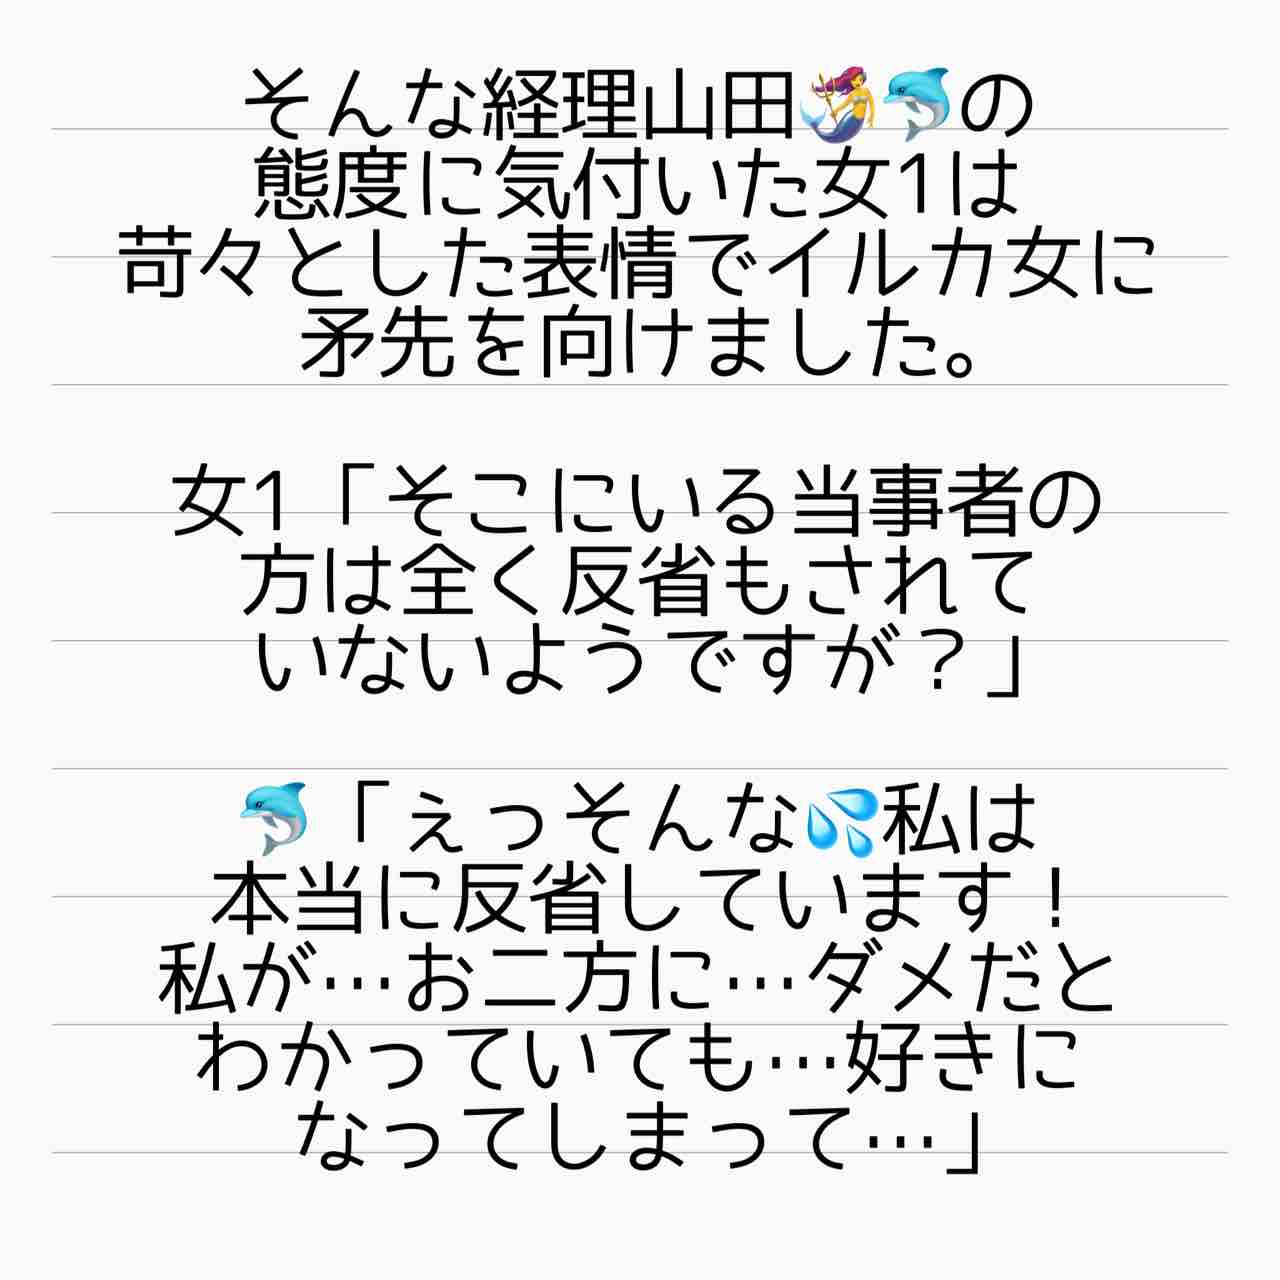 そんな経理山田🧜‍♀️🐬の
態度に気付いた女1は
苛々とした表情でイルカ女に
矛先を向けました。
女1「そこにいる当事者の
方は全く反省もされて
いないようですが？」
🐬「ぇっそんな💦私は
本当に反省しています！
私が…お二方に…ダメだと
わかっていても…好きに
なってしまって…」